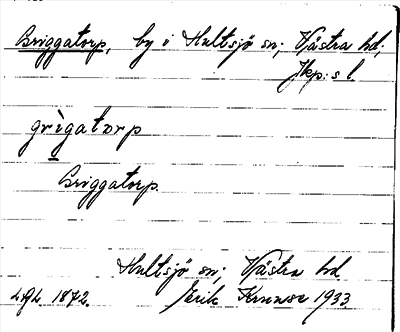 Briggatorp, by i Hultsjö sn; Västra hd;
Jkp:s l.
grìgatorp
Briggatorp.
Hultsjö sn; Västra hd
1872. Erik 1933